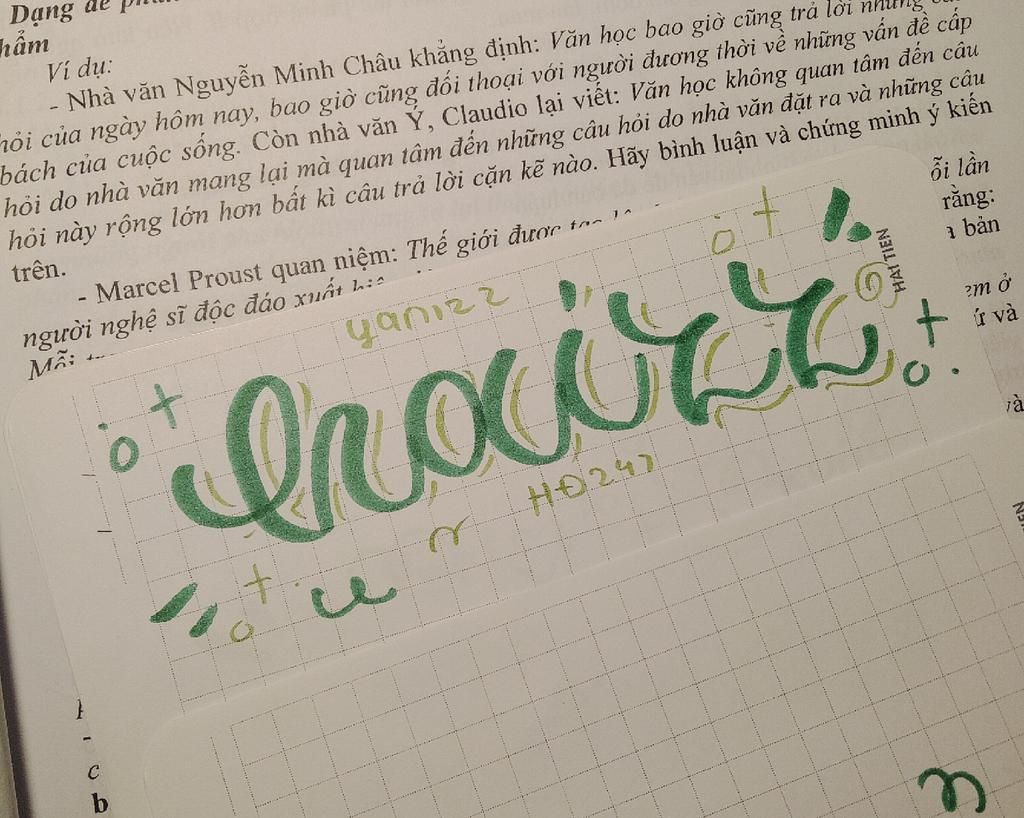 Dạng đề
hẩm
Ví dụ:
- Nhà văn Nguyễn Minh Châu khẳng định: Văn học bao giờ cũng trả lời những
hỏi của ngày hôm nay, bao giờ cũng đối thoại với người đương thời về những vấn đề cấp
bách của cuộc sống. Còn nhà văn Ý, Claudio lại viết: Văn học không quan tâm đến câu
hỏi do nhà văn mang lại mà quan tâm đến những câu hỏi do nhà văn đặt ra và những câu
hỏi này rộng lớn hơn bất kì câu trả lời cặn kẽ nào. Hãy bình luận và chứng minh ý kiến
trên.
ỗi lần
- Marcel Proust quan niệm: Thế giới được
rằng:
người nghệ sĩ độc đáo xuất
bản
Mỗi
yanizz
HẢI TIẾN
em ở
ứ và
HĐ247
và
c
b
n